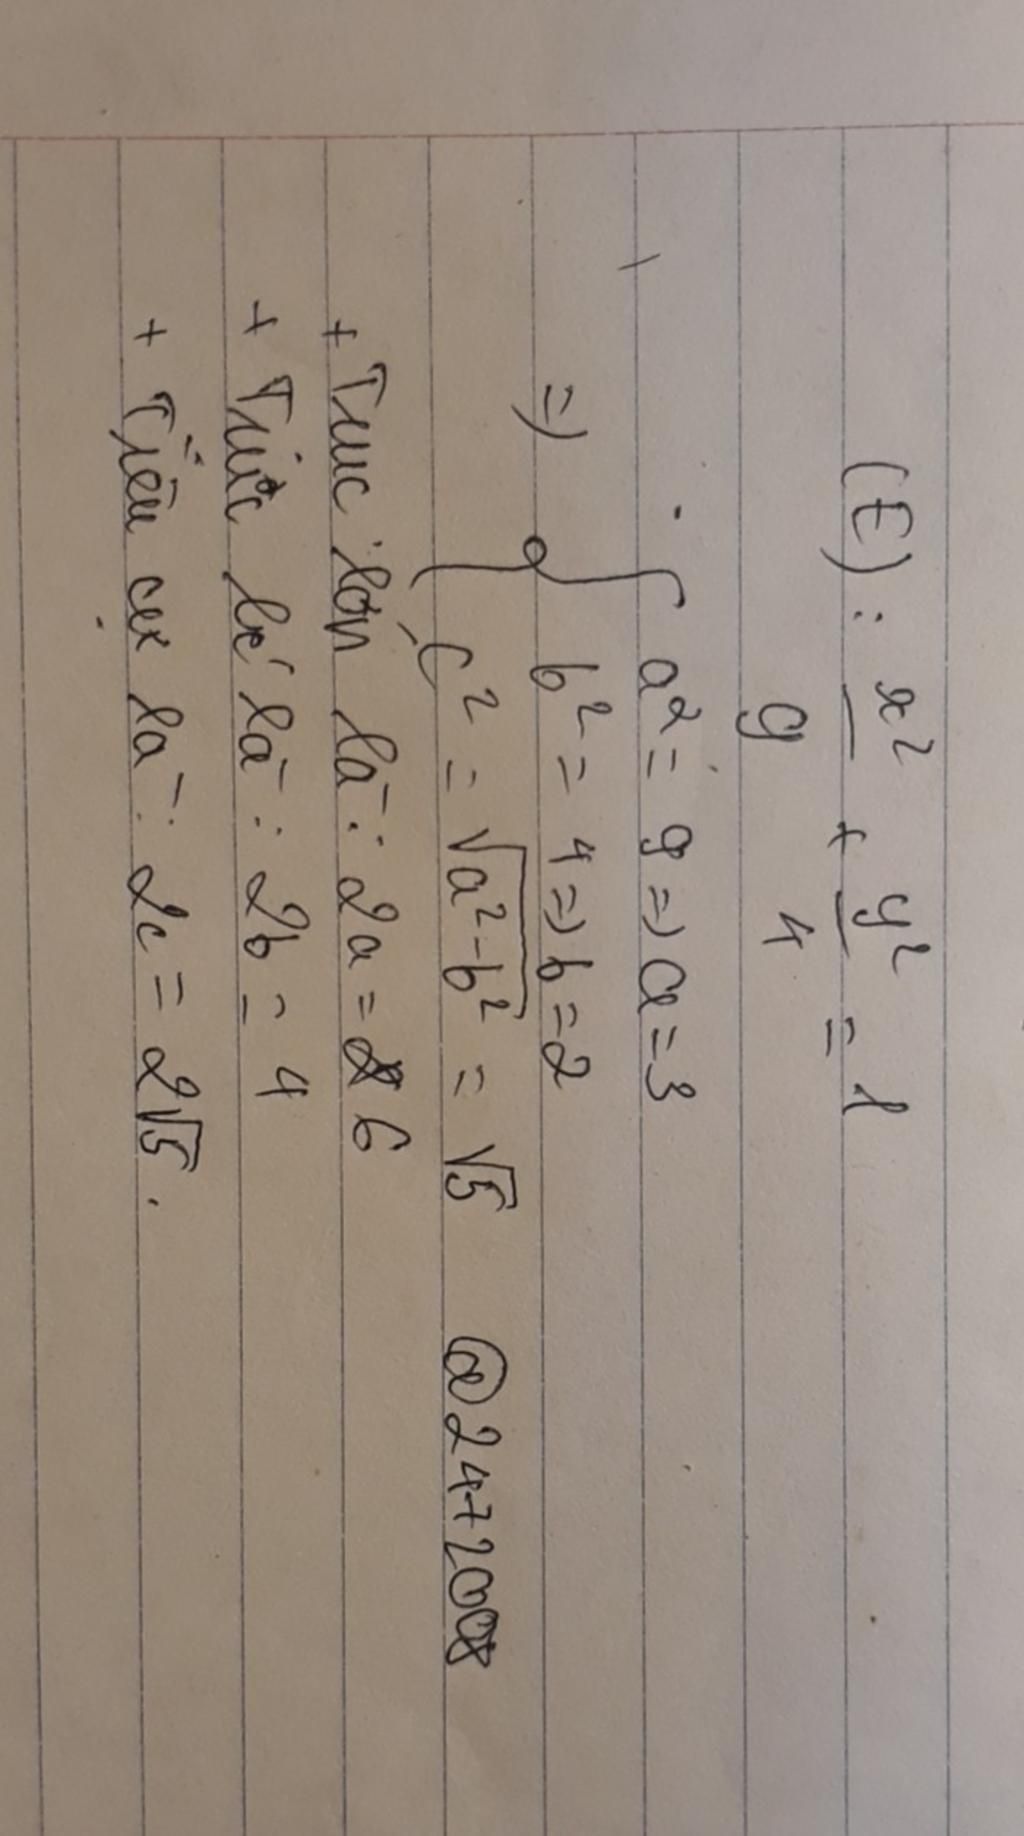 (E) : x²/9 + y²/4 = 1
=> { a² = 9 => a = 3
b² = 4 => b = 2
c² = √(a² - b²) = √5 @2472008
+ Trục lớn là : 2a = 6
+ Trục bé là : 2b = 4
+ Tiêu cự là : 2c = 2√5.